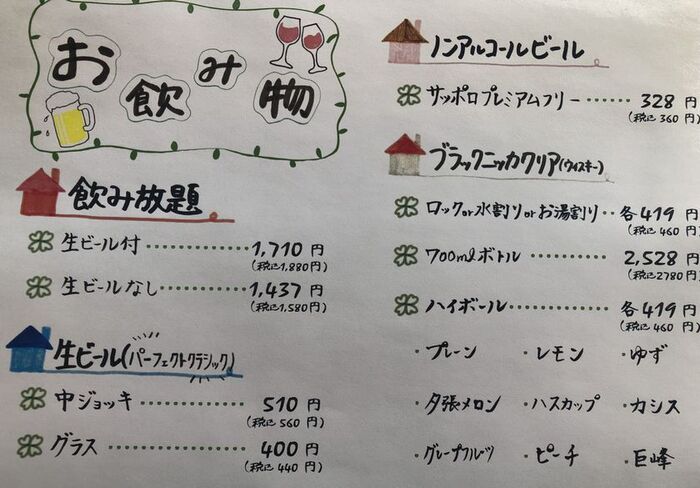 お飲み物
飲み放題
生ビール付 ・・・・・・・・・・ 1,710 円
(税に1,880円)
生ビールなし ・・・・・・・・・ 1,437 円
(税に1,580円)
生ビール(パーフェクトクラシック)
中ジョッキ ・・・・・・・・・・ 510 円
(税に 560円)
グラス ・・・・・・・・・・・・ 400 円
(税に 440円)
ノンアルコールビール
サッポロプレミアムフリー ・・・・・・ 328 円
(税に 360円)
ブラックニッカクリア(ウイスキー)
ロックor水割りorお湯割り ・・ 各419 円
(税に 460円)
700mlボトル ・・・・・・・・・ 2,528 円
(税に2780円)
ハイボール ・・・・・・・・・・ 各419 円
(税に 460円)
・プレーン ・レモン ・ゆず
・夕張メロン ・ハスカップ ・カシス
・グレープフルーツ ・ピーチ ・巨峰